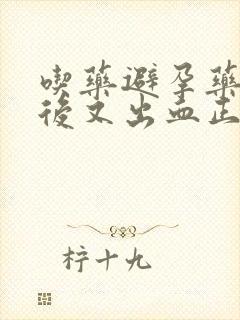 喫藥避孕藥
後又出血正
柠十九